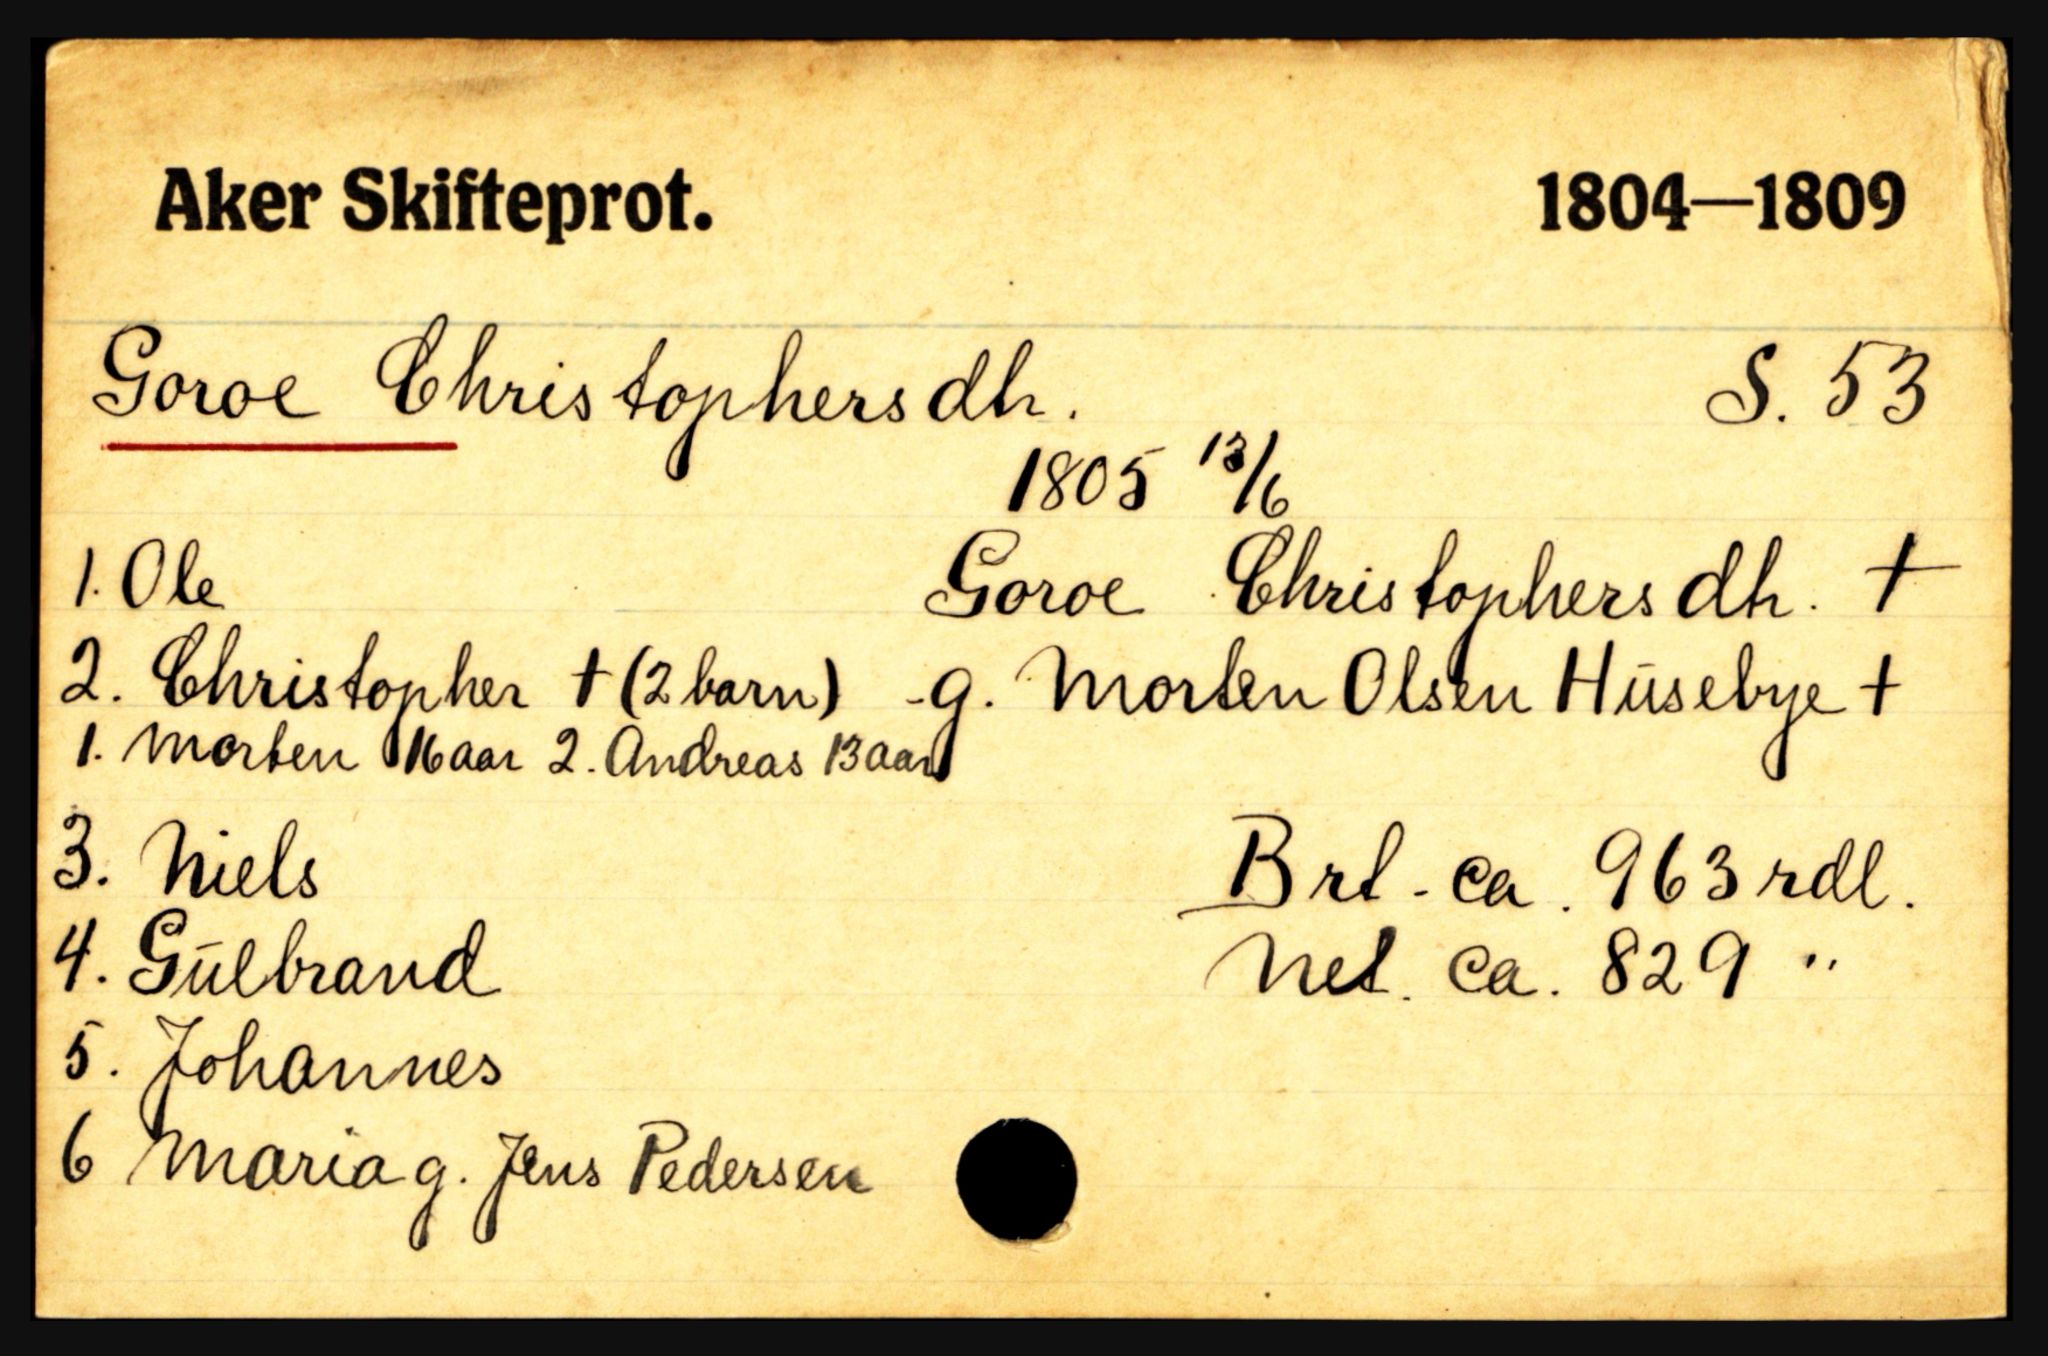 Aker Skifteprot. 1804—1809
Goroe Christophersdh. S. 53
1805 13/6
1. Ole Goroe Christophersdh. †
2. Christopher † (2 barn) - g. Morten Olsen Hūsebye †
1. Morten 16 aar 2. Andreas 13 aar
3. Niels Brt. ca. 963 rdl.
4. Gūlbrand Net. ca. 829 "
5. Johannes
6 Maria g. Jens Pedersen